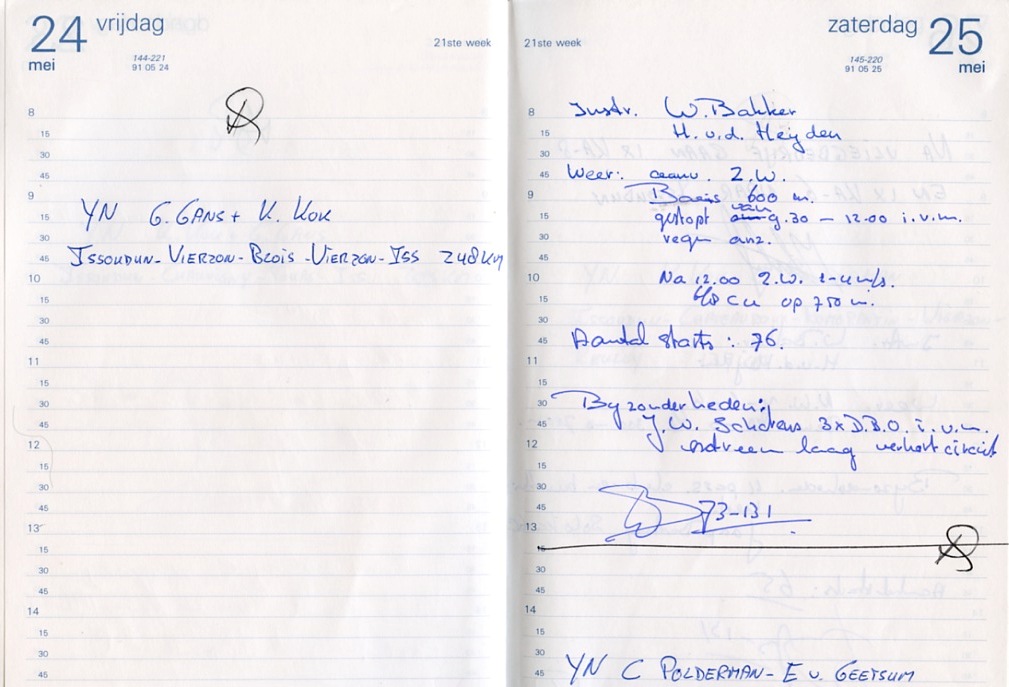 24 vrijdag
mei
144-221
91 05 24
21ste week
8
15
30
45
9
15
30
45
10
15
30
45
11
15
30
45
12
15
30
45
13
15
30
45
14
15
30
45
YN G. GANS + K. KOK
ISSOUDUN - VIERZON - BLOIS - VIERZON - ISS 248 KM
zaterdag 25
mei
21ste week
145-220
91 05 25
8
15
30
45
9
15
30
45
10
15
30
45
11
15
30
45
12
15
30
45
13
15
30
45
14
15
30
45
Instr. W. Bakker
H. v.d. Heyden
Weer: Z.W.
Basis 600 m.
gestopt van 9.30 - 12.00 i.v.m.
regen enz.
Na 12.00 Z.W. m/s.
Cu op 750 m.
Aantal starts: 76.
Byzonderheden:
J.W. 3x D.B.O. i.v.m.
extreem laag verkort circuit
73-131
YN C POLDERMAN - E v. GEETSUM